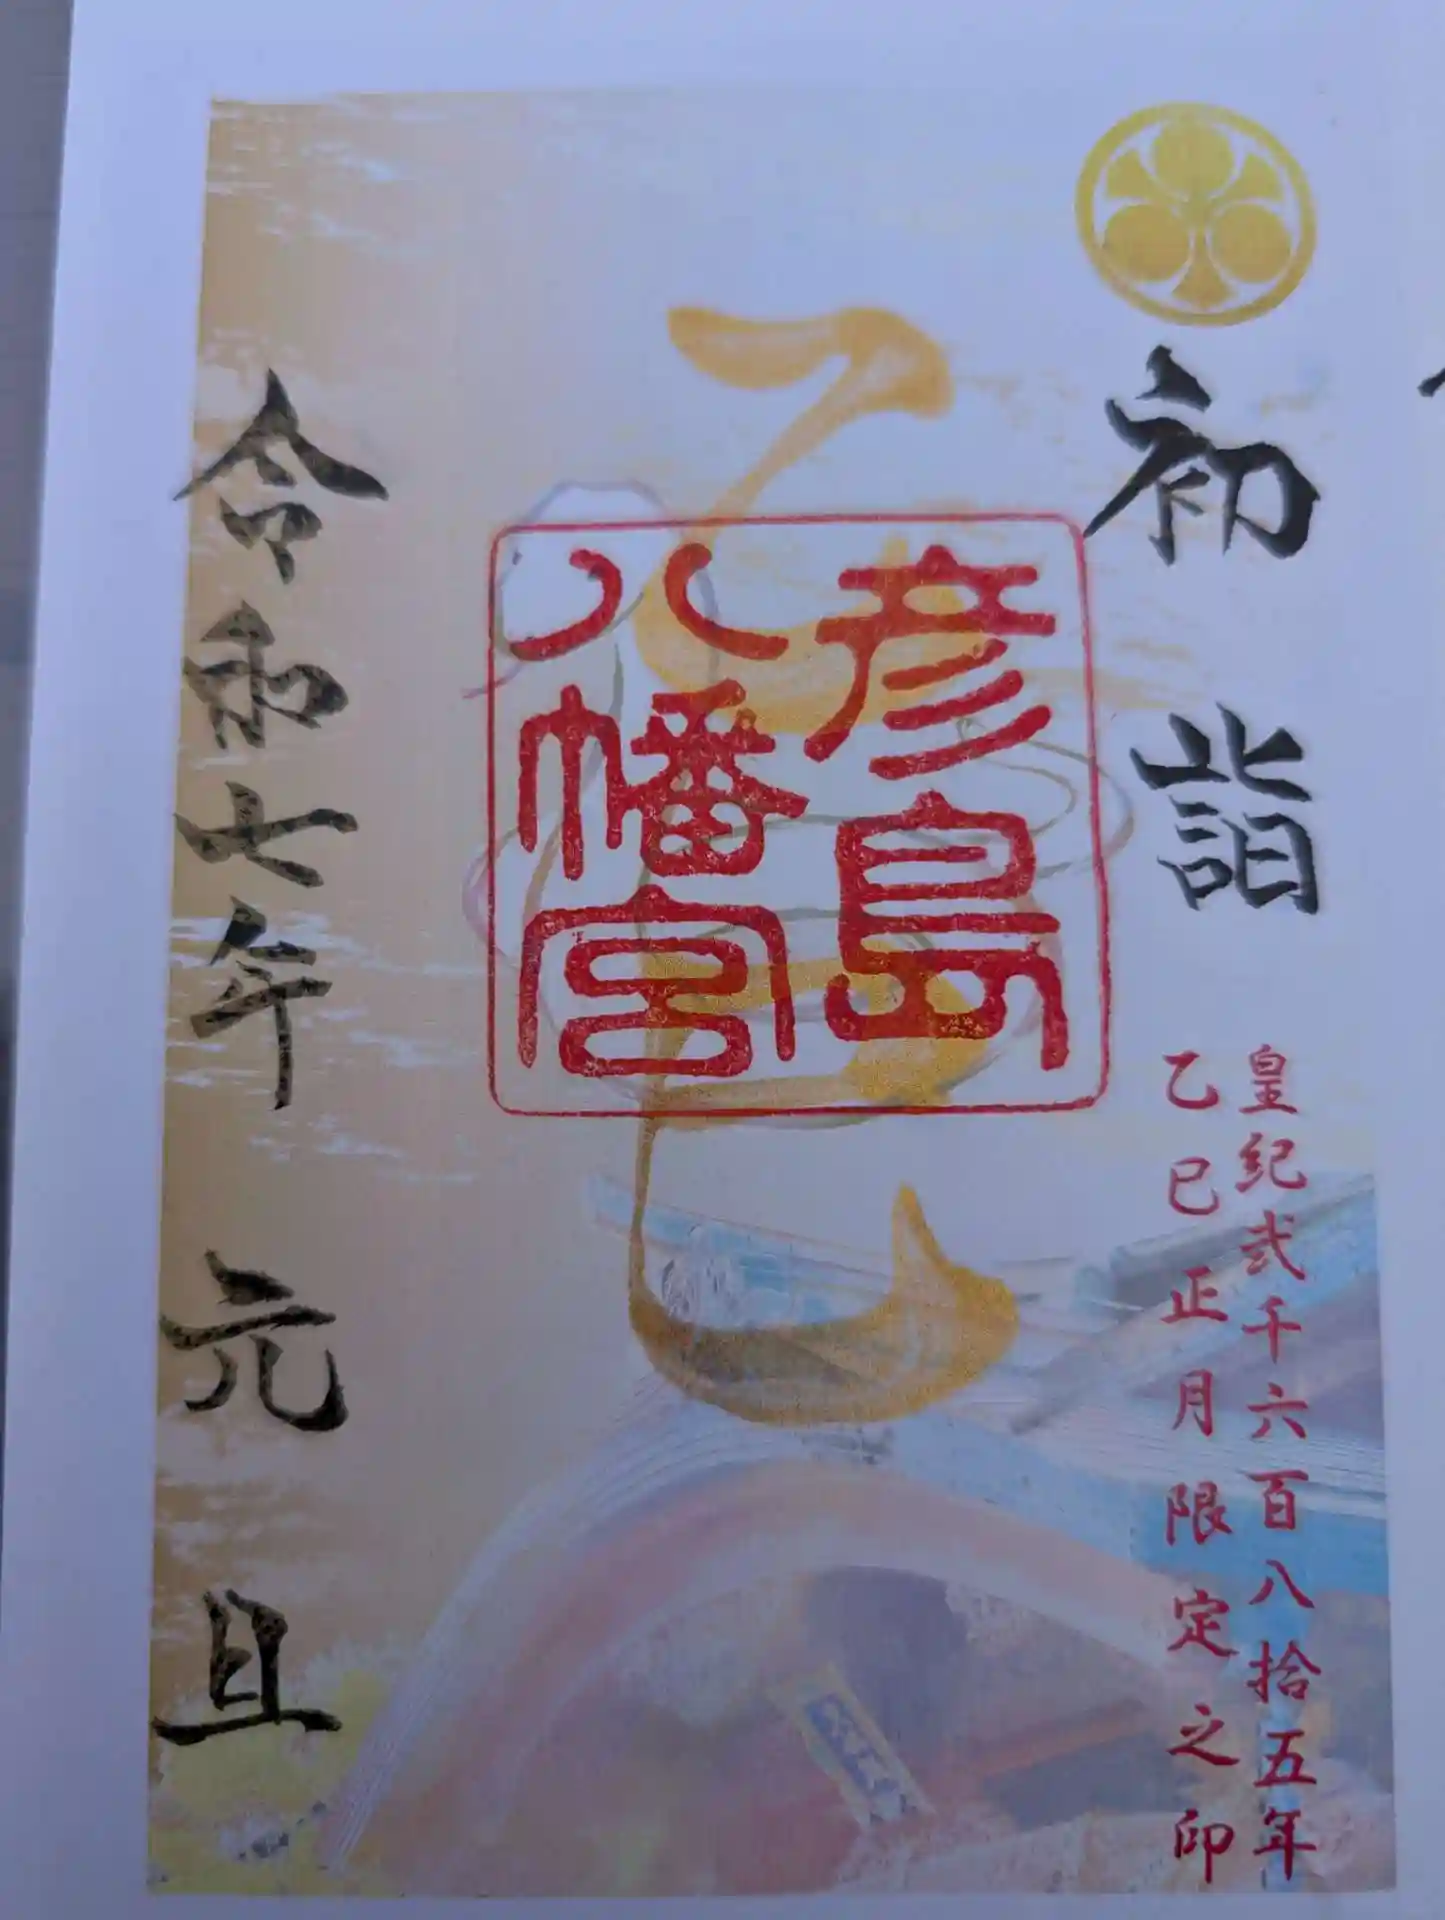 初詣
皇紀弐千六百八拾五年
乙巳正月限定之印
乙巳
彦島
八幡宮
令和七年 元旦